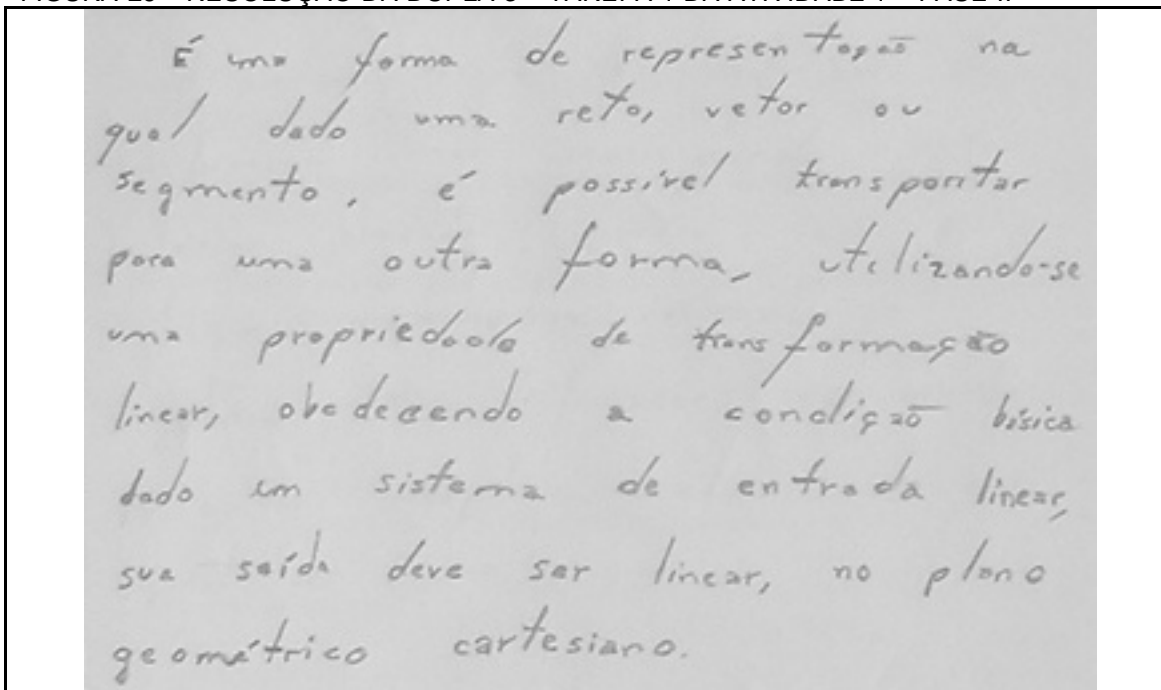 É uma forma de representação na
qual dado uma reta, vetor ou
segmento, é possível transportar
para uma outra forma, utilizando-se
uma propriedade de transformação
linear, obedecendo a condição básica
dado um sistema de entrada linear,
sua saída deve ser linear, no plano
geométrico cartesiano.